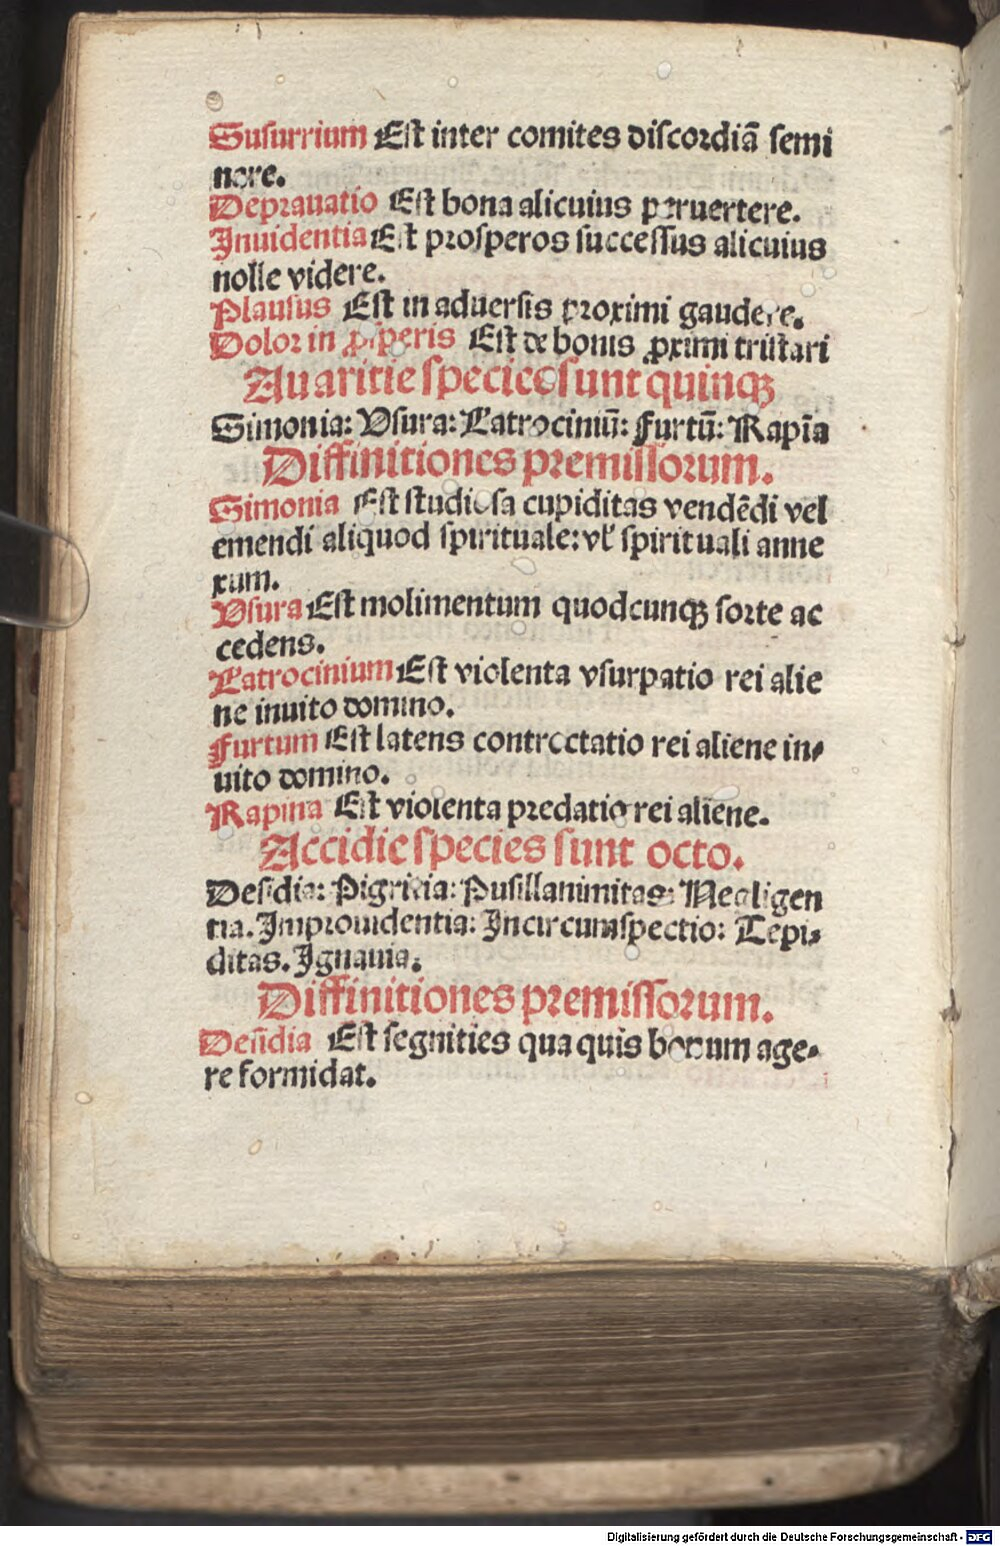 Susurrium Est inter comites discordiā semi
nare.
Deprauatio Est bona alicuius peruertere.
Inuidentia Est prosperos successus alicuius
nolle videre.
Plausus Est in aduersis proximi gaudere.
Dolor in ꝓsperis Est de bonis ꝓximi tristari
Auaritie species sunt quinqꝫ
Simonia: Vsura: Latrociniū: Furtū: Rapīa
Diffinitiones premissorum.
Simonia Est studiosa cupiditas vendēdi vel
emendi aliquod spirituale: vl' spirituali anne
xum.
Vsura Est molimentum quodcunqꝫ sorte ac
cedens.
Latrocinium Est violenta vsurpatio rei alie
ne inuito domino.
Furtum Est latens contrectatio rei aliene in⸗
uito domino.
Rapina Est violenta predatio rei aliene.
Accidie species sunt octo.
Desidia: Pigricia: Pusillanimitas: Negligen
tia. Improuidentia: Incircumspectio: Tepi⸗
ditas. Ignauia.
Diffinitiones premissorum.
Desidia Est segnities qua quis bonum age⸗
re formidat.
Digitalisierung gefördert durch die Deutsche Forschungsgemeinschaft - DFG